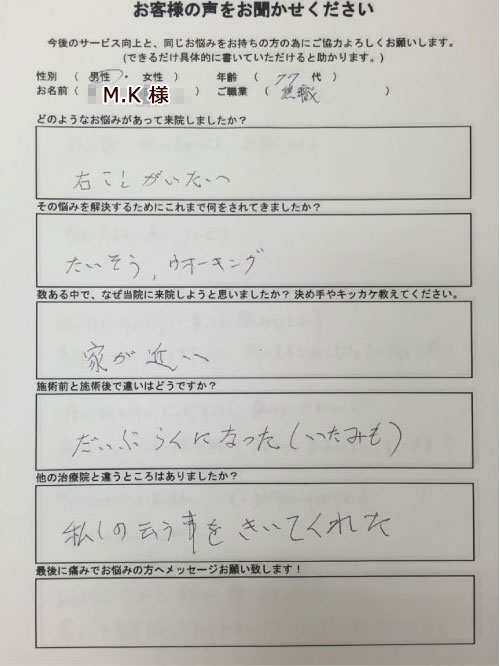 お客様の声をお聞かせください
今後のサービス向上と、同じお悩みをお持ちの方の為にご協力よろしくお願いします。
(できるだけ具体的に書いていただけると助かります。)
性別 ( 男性 ・ 女性 ) 年齢 ( 77 代 )
お名前 ( M.K 様 ) ご職業 ( 無職 )
どのようなお悩みがあって来院しましたか？
右こしがいたい
その悩みを解決するためにこれまで何をされてきましたか？
たいそう, ウオーキング
数ある中で、なぜ当院に来院しようと思いましたか？ 決め手やキッカケ教えてください。
家が近い
施術前と施術後で違いはどうですか？
だいぶらくになった(いたみも)
他の治療院と違うところはありましたか？
私しの云う事をきいてくれた
最後に痛みでお悩みの方へメッセージお願い致します！